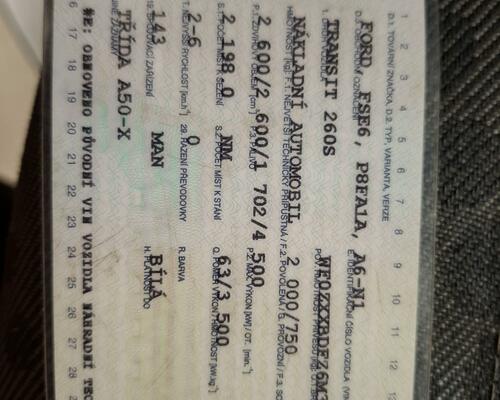 1 2 3 4 5 6 7 8 9 10 11 12
D.1. TOVÁRNÍ ZNAČKA, D.2. TYP, VARIANTA, VERZE
FORD FSE6, P8FA1A, A6-N1
D.3. OBCHODNÍ OZNAČENÍ E. IDENTIFIKAČNÍ ČÍSLO VOZIDLA (VIN
TRANSIT 260S WF0ZXXBDFZ6M3
NÁKLADNÍ AUTOMOBIL 2 000/750
2 600/2 600/1 702/4 500
P.3. PALIVO P.2. MAX. VÝKON [kW] / OT. [min.⁻¹]
2 198.0 NM 63/3 500
S.1. POČET MÍST K SEZENÍ S.2. POČET MÍST K STÁNÍ Q. POMĚR VÝKON / HMOTNOST [kW.kg⁻¹]
2 6 0
T. NEJVYŠŠÍ RYCHLOST [km.h⁻¹] 29. ŘAZENÍ PŘEVODOVKY R. BARVA
143 MAN BÍLÁ
19. SPOJOVACÍ ZAŘÍZENÍ H. PLATNOST DO
TŘÍDA A50-X
6 17 18 19 20 21 22 23 24 25 26 27 28
OBNOVENO PŮVODNÍ VIN VOZIDLA NÁHRADNÍ TEC